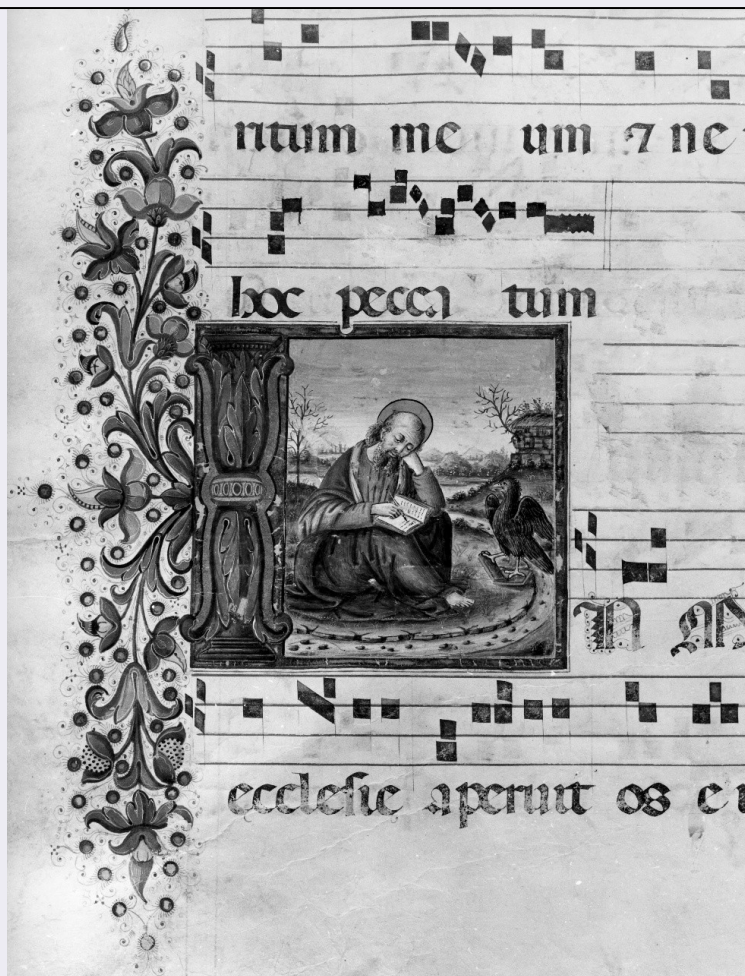 ritum me um ⁊ ne
hoc pecca tum
IN M
eccleſie aperuit os e